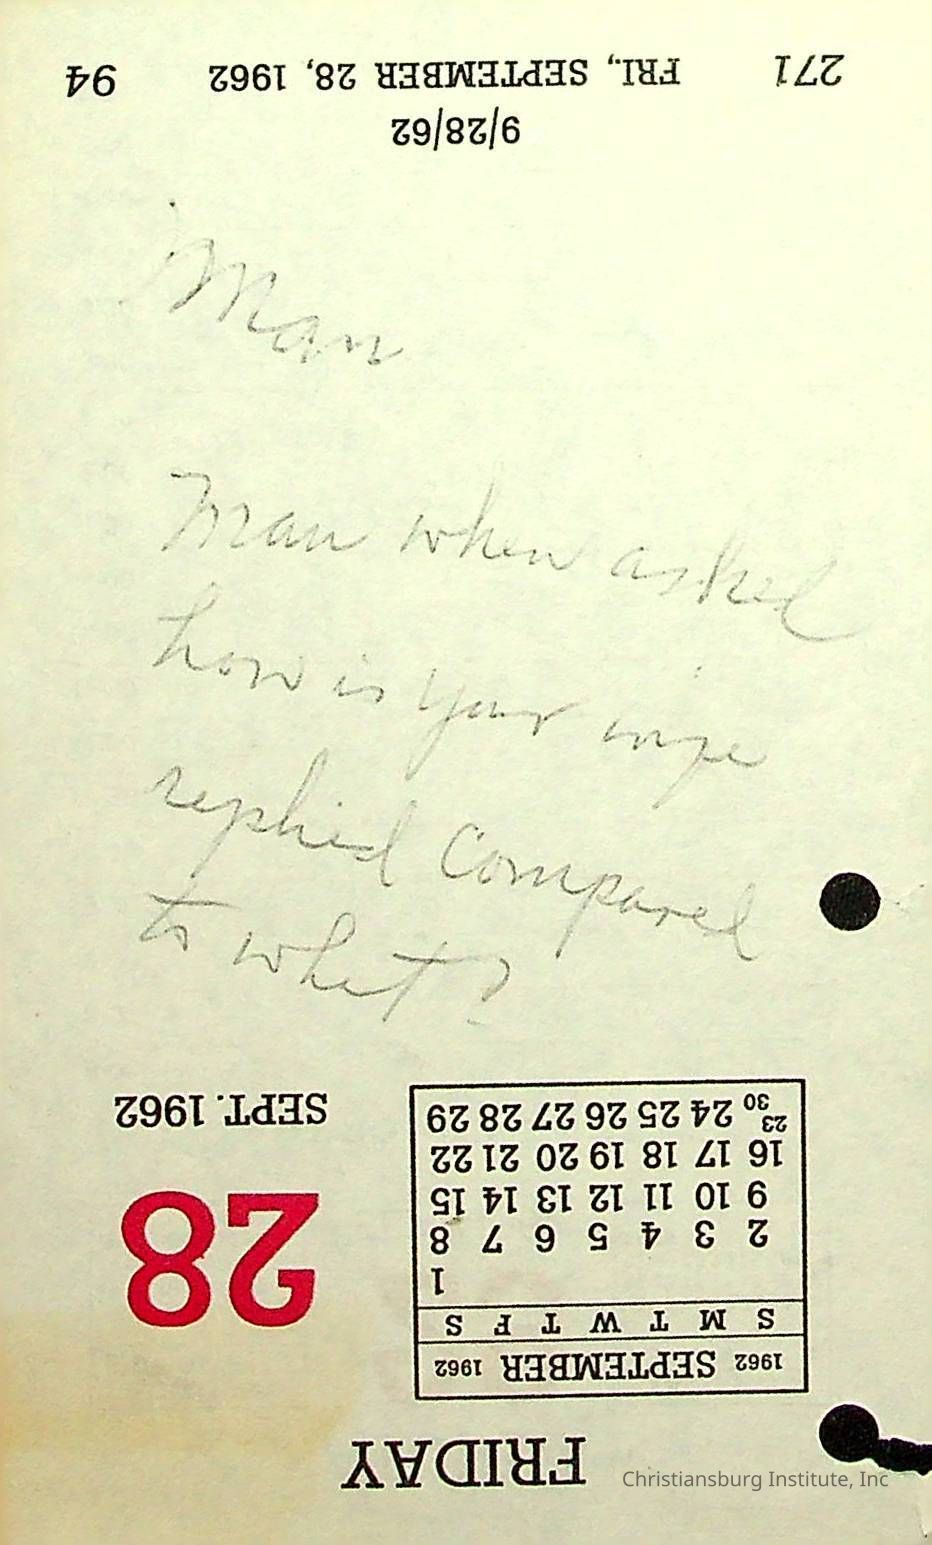 271 FRI., SEPTEMBER 28, 1962 94
9/28/62
Man
Man when asked
how is your wife
replied Compared
to what?
SEPT. 1962
28
FRIDAY
1962 SEPTEMBER 1962
S M T W T F S
1
2 3 4 5 6 7 8
9 10 11 12 13 14 15
16 17 18 19 20 21 22
23 30 24 25 26 27 28 29
Christiansburg Institute, Inc